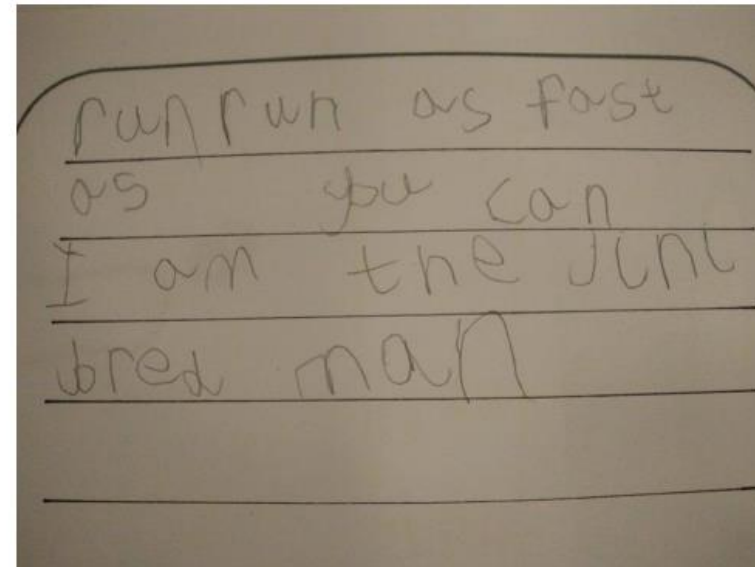 run run as fast
as you can
I am the Jini
bred man